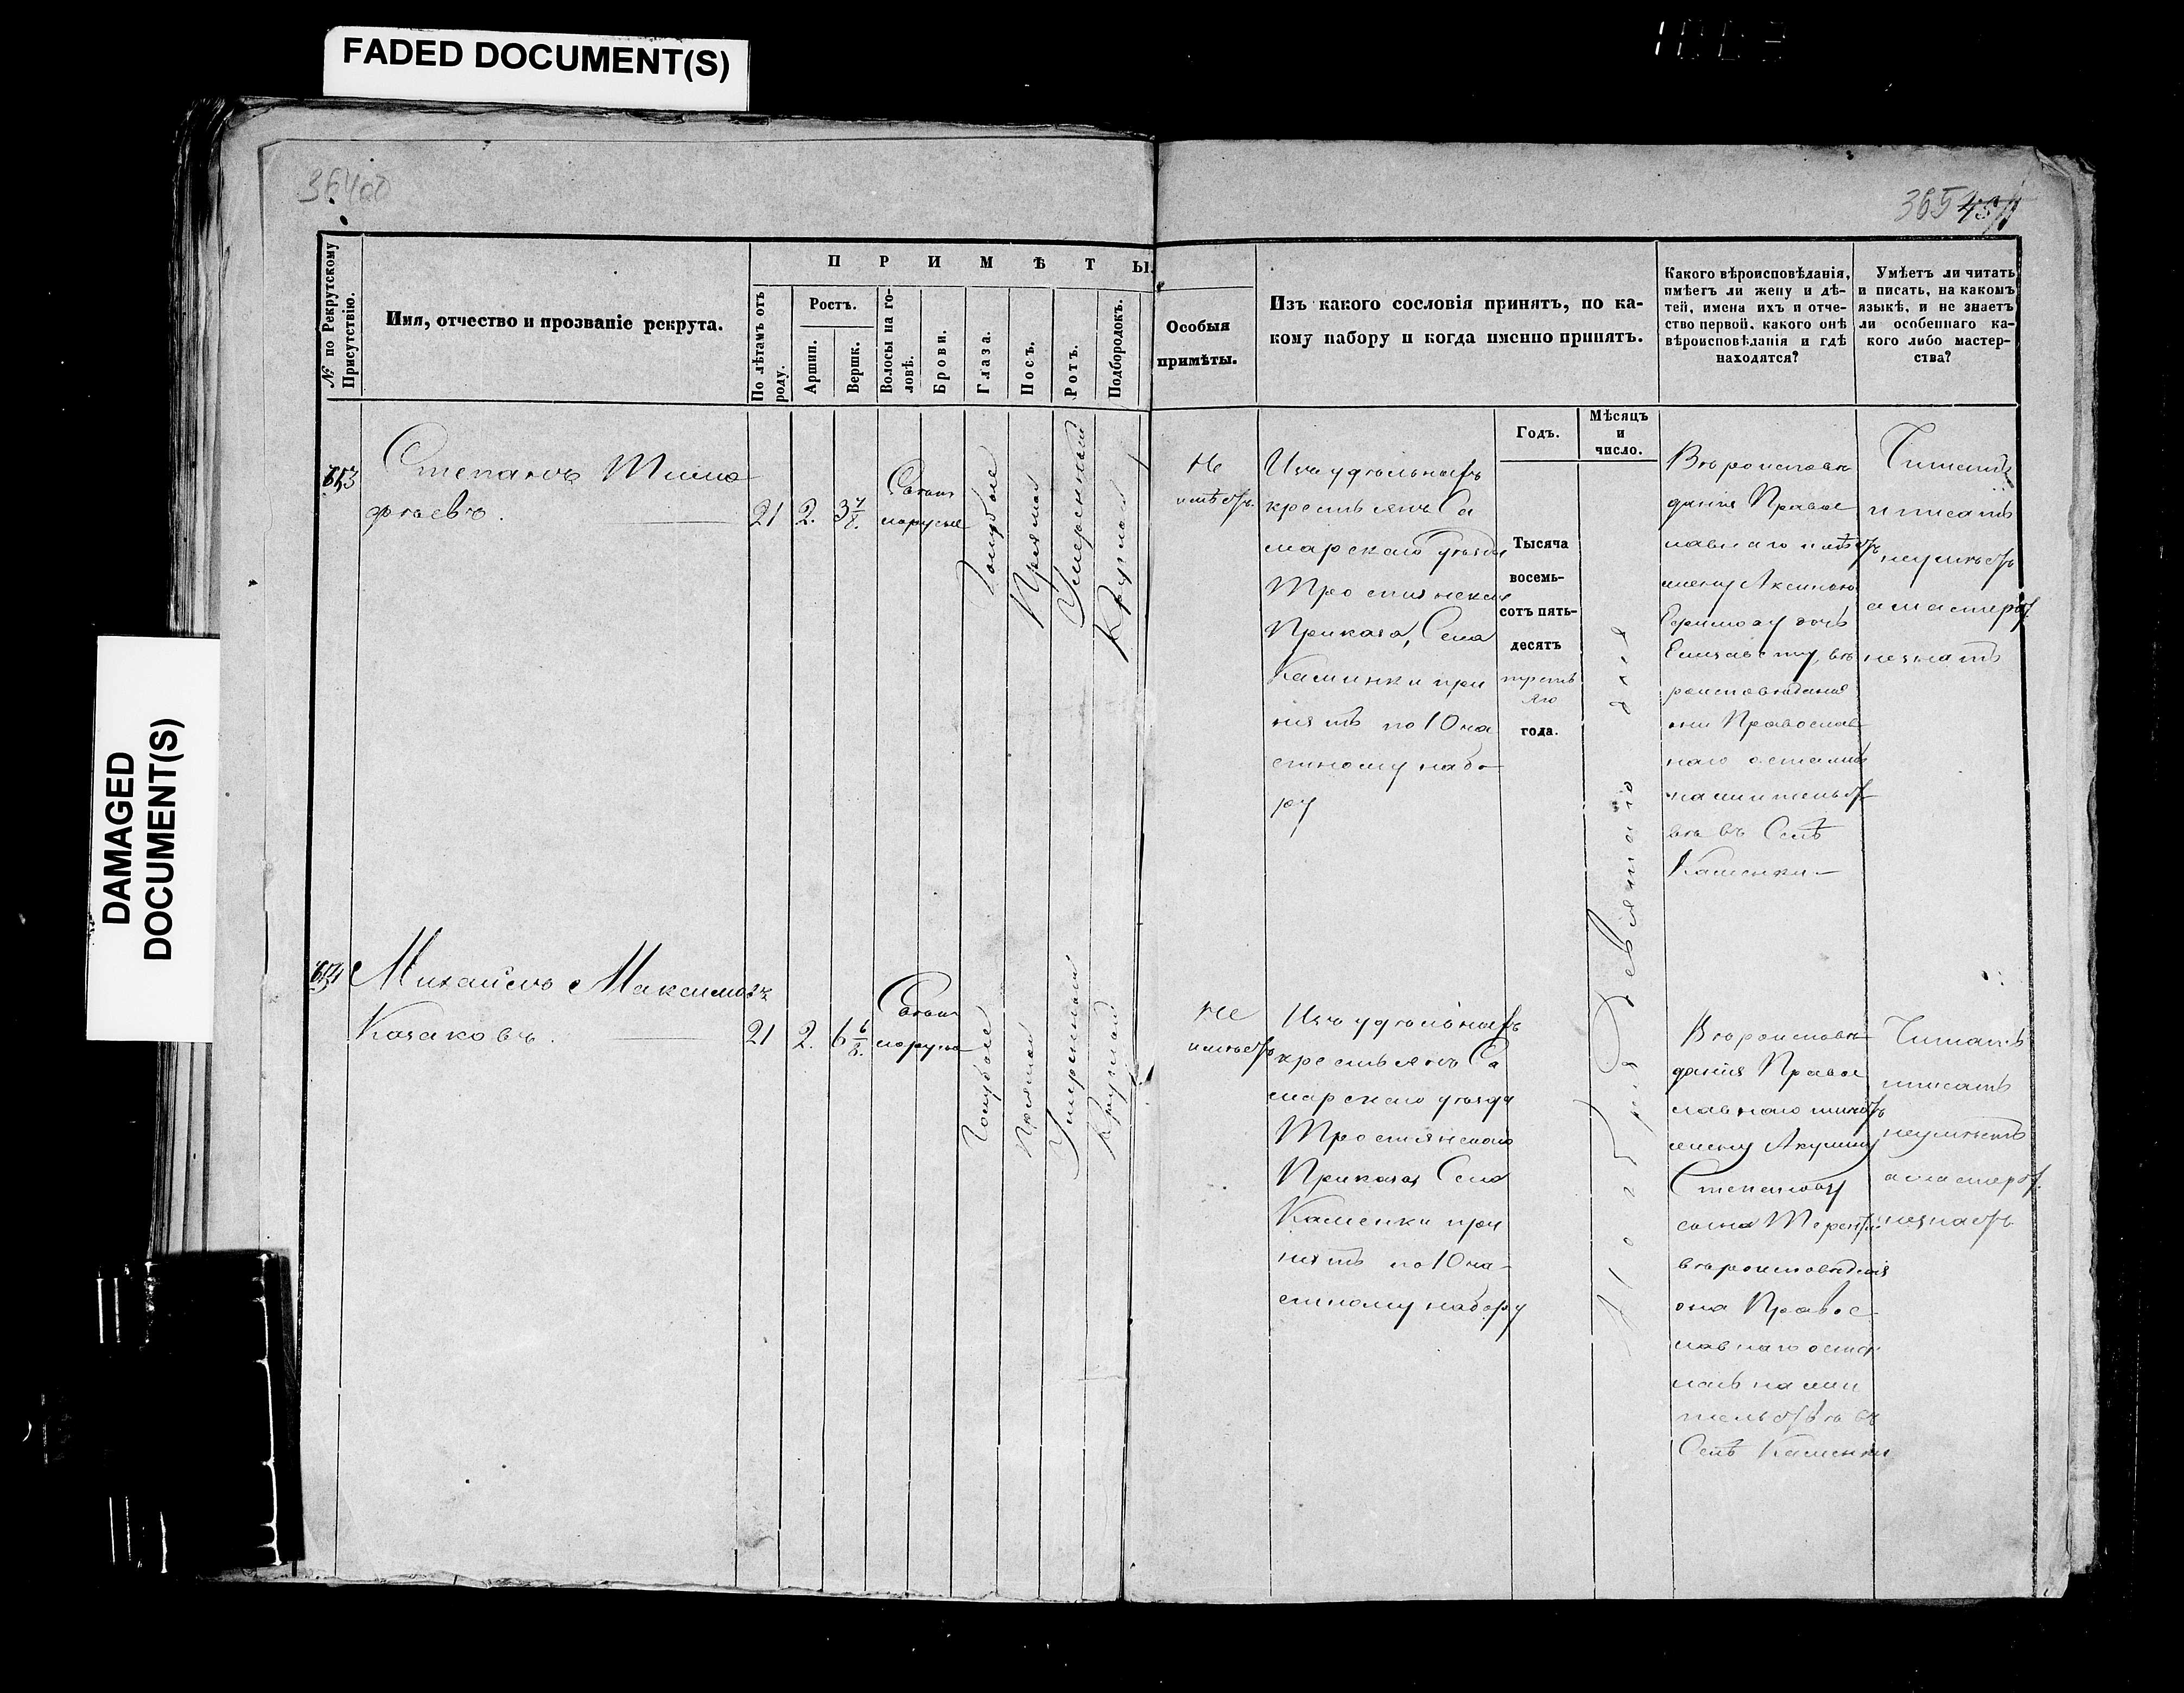 FADED DOCUMENT(S)
DAMAGED
DOCUMENT(S)
365
№ по Рекрутскому
Присутствію.
Имя, отчество и прозваніе рекрута.
ПРИМѢТЫ.
По лѣтамъ отъ
роду.
Ростъ.
Аршин.
Вершк.
Волосы на го-
ловѣ.
Брови.
Глаза.
Носъ.
Ротъ.
Подбородокъ.
Особыя
примѣты.
Изъ какого сословія принятъ, по ка-
кому набору и когда именно принятъ.
Какого вѣроисповѣданія,
имѣетъ ли жену и дѣ-
тей, имена ихъ и отче-
ство первой, какого онѣ
вѣроисповѣданія и гдѣ
находятся?
Умѣетъ ли читать
и писать, на какомъ
языкѣ, и не знаетъ
ли особеннаго ка-
кого либо мастер-
ства?
Годъ.
Мѣсяцъ
и
число.
653
Степанъ Тимо
фѣевъ.
21
2.
3 7/8.
Свѣтло
порусые
Голубые
Прямой
Умеренный
Круглой
Не
имѣетъ.
Изъ удѣльныхъ
крестьянъ Са
марскаго уѣзда
Тростянскаго
Приказа, Села
Каминки при
нятъ по 10 ча
стному набо-
ру
Тысяча
восемь-
сотъ пять-
десятъ
треть
яго
года.
Ноября Девятаго дня
Вѣроисповѣ
данія Правос
лавнаго имѣетъ
жену Аксинью
Ефимову дочь
Елизавету, вѣ
роисповѣданія
они Православ
наго остались
на жительст
вѣ въ Селѣ
Каменки
Читать
и писать
неумѣетъ
а мастерст.
незнать
654
Михайло Максимовъ
Казаковъ.
21
2.
6 6/8.
Свѣтло
порусые
Голубые
Прямой
Умеренный
Круглой
Не
имѣетъ
Изъ удѣльныхъ
крестьянъ Са
марскаго уѣзда
Тростянскаго
Приказа Села
Каменки при
нятъ по 10 ча-
стному набору
Вѣроисповѣ
данія Правос
лавнаго имѣетъ
жену Акулину
Степанову
сына Терентія
вѣроисповѣданія
она Правос-
лавнаго оста
лась на жи
тельствѣ въ
Селѣ Каменки
Читать
писать
неумѣетъ
а мастерст.
незнаетъ